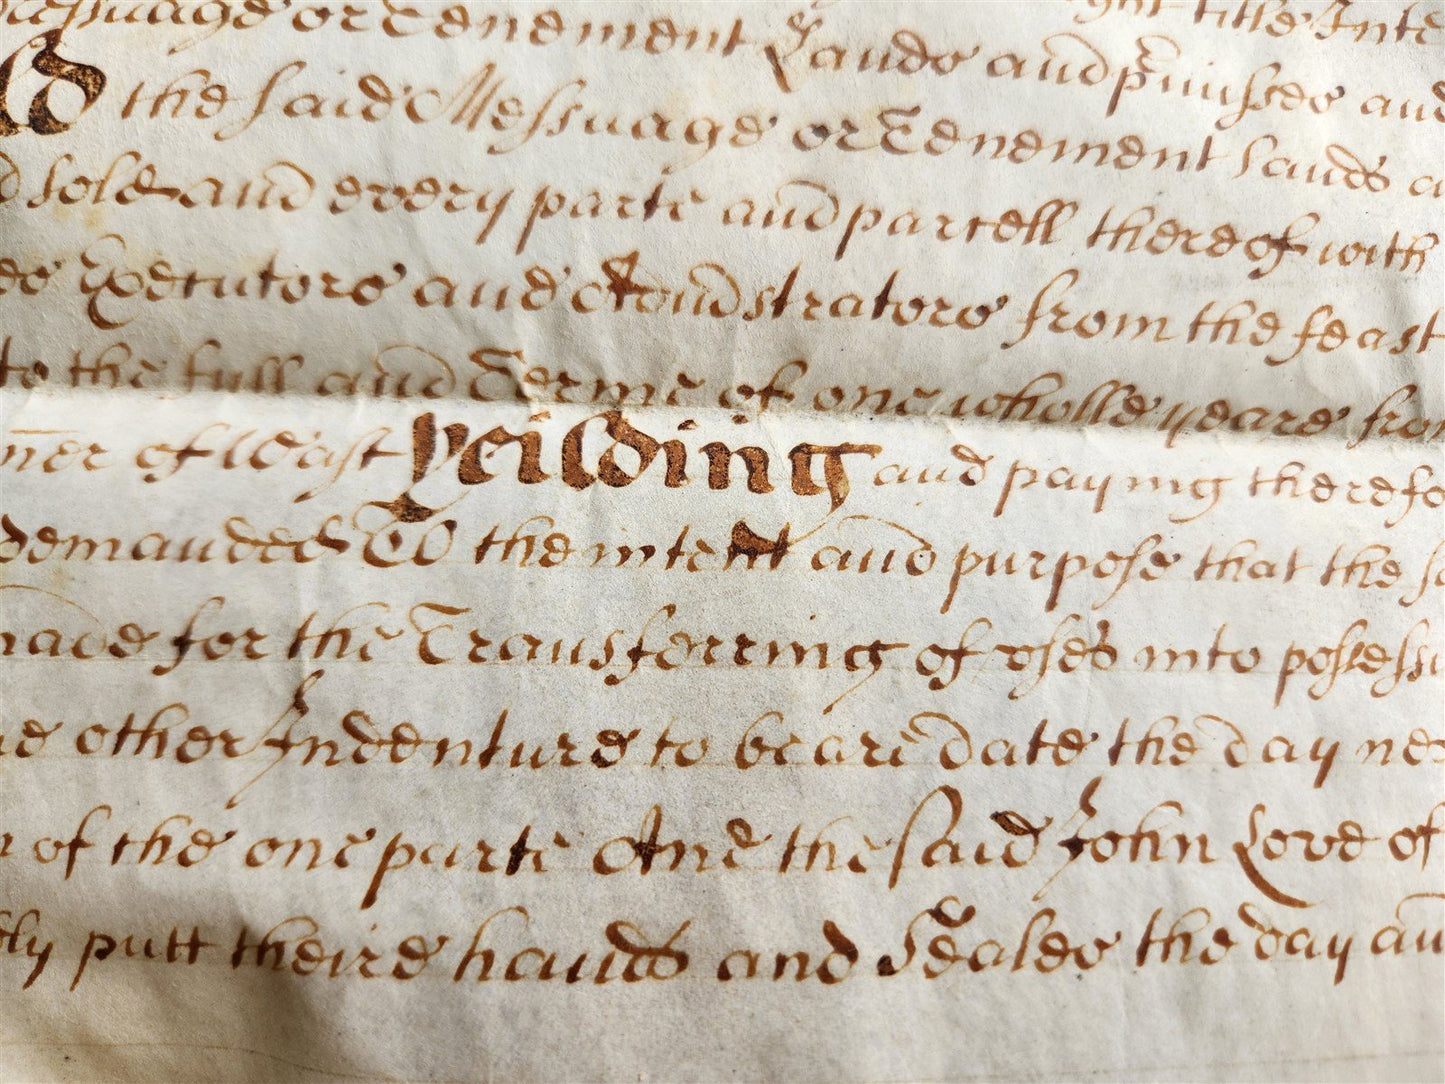 Messuage or Tenement Lands and p'misses and
the said Messuage or Tenement Lands
sold and every parte and parcell thereof with
Executors and Admīstrators from the feast
to the full and Terme of one wholle yeare from
of last Yeilding and paying therefo
demanded To the intent and purpose that the
made for the Transferring of vses into possessi
other Indenture to beare date the day nex
of the one parte And the said John Love of
putt theire hands and Seales the day an